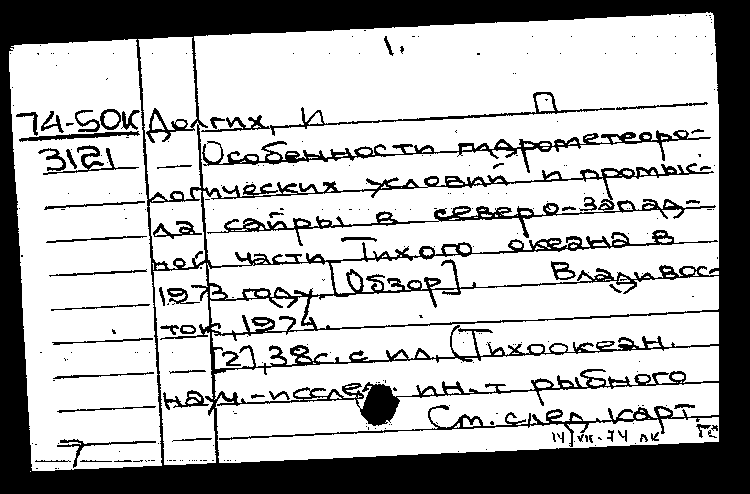 1.
74-50К Долгих, И П
3121 Особенности гидрометеоро-
логических условий и промыс-
ла сайры в северо-запад-
ной части Тихого океана в
1973 году. [Обзор]. Владивос-
ток, 1974.
[2], 38с. с ил. (Тихоокеан.
науч.-исслед. ин-т рыбного
См. след. карт.
14/VII-74 ЛК
7